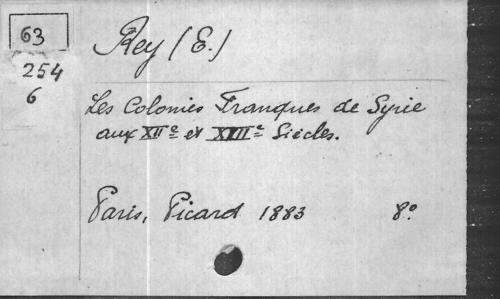 63
254
6
Rey (E.)
Les Colonies Franques de Syrie
aux XIIe et XIIIe Siècles.
Paris, Picard 1883 8°